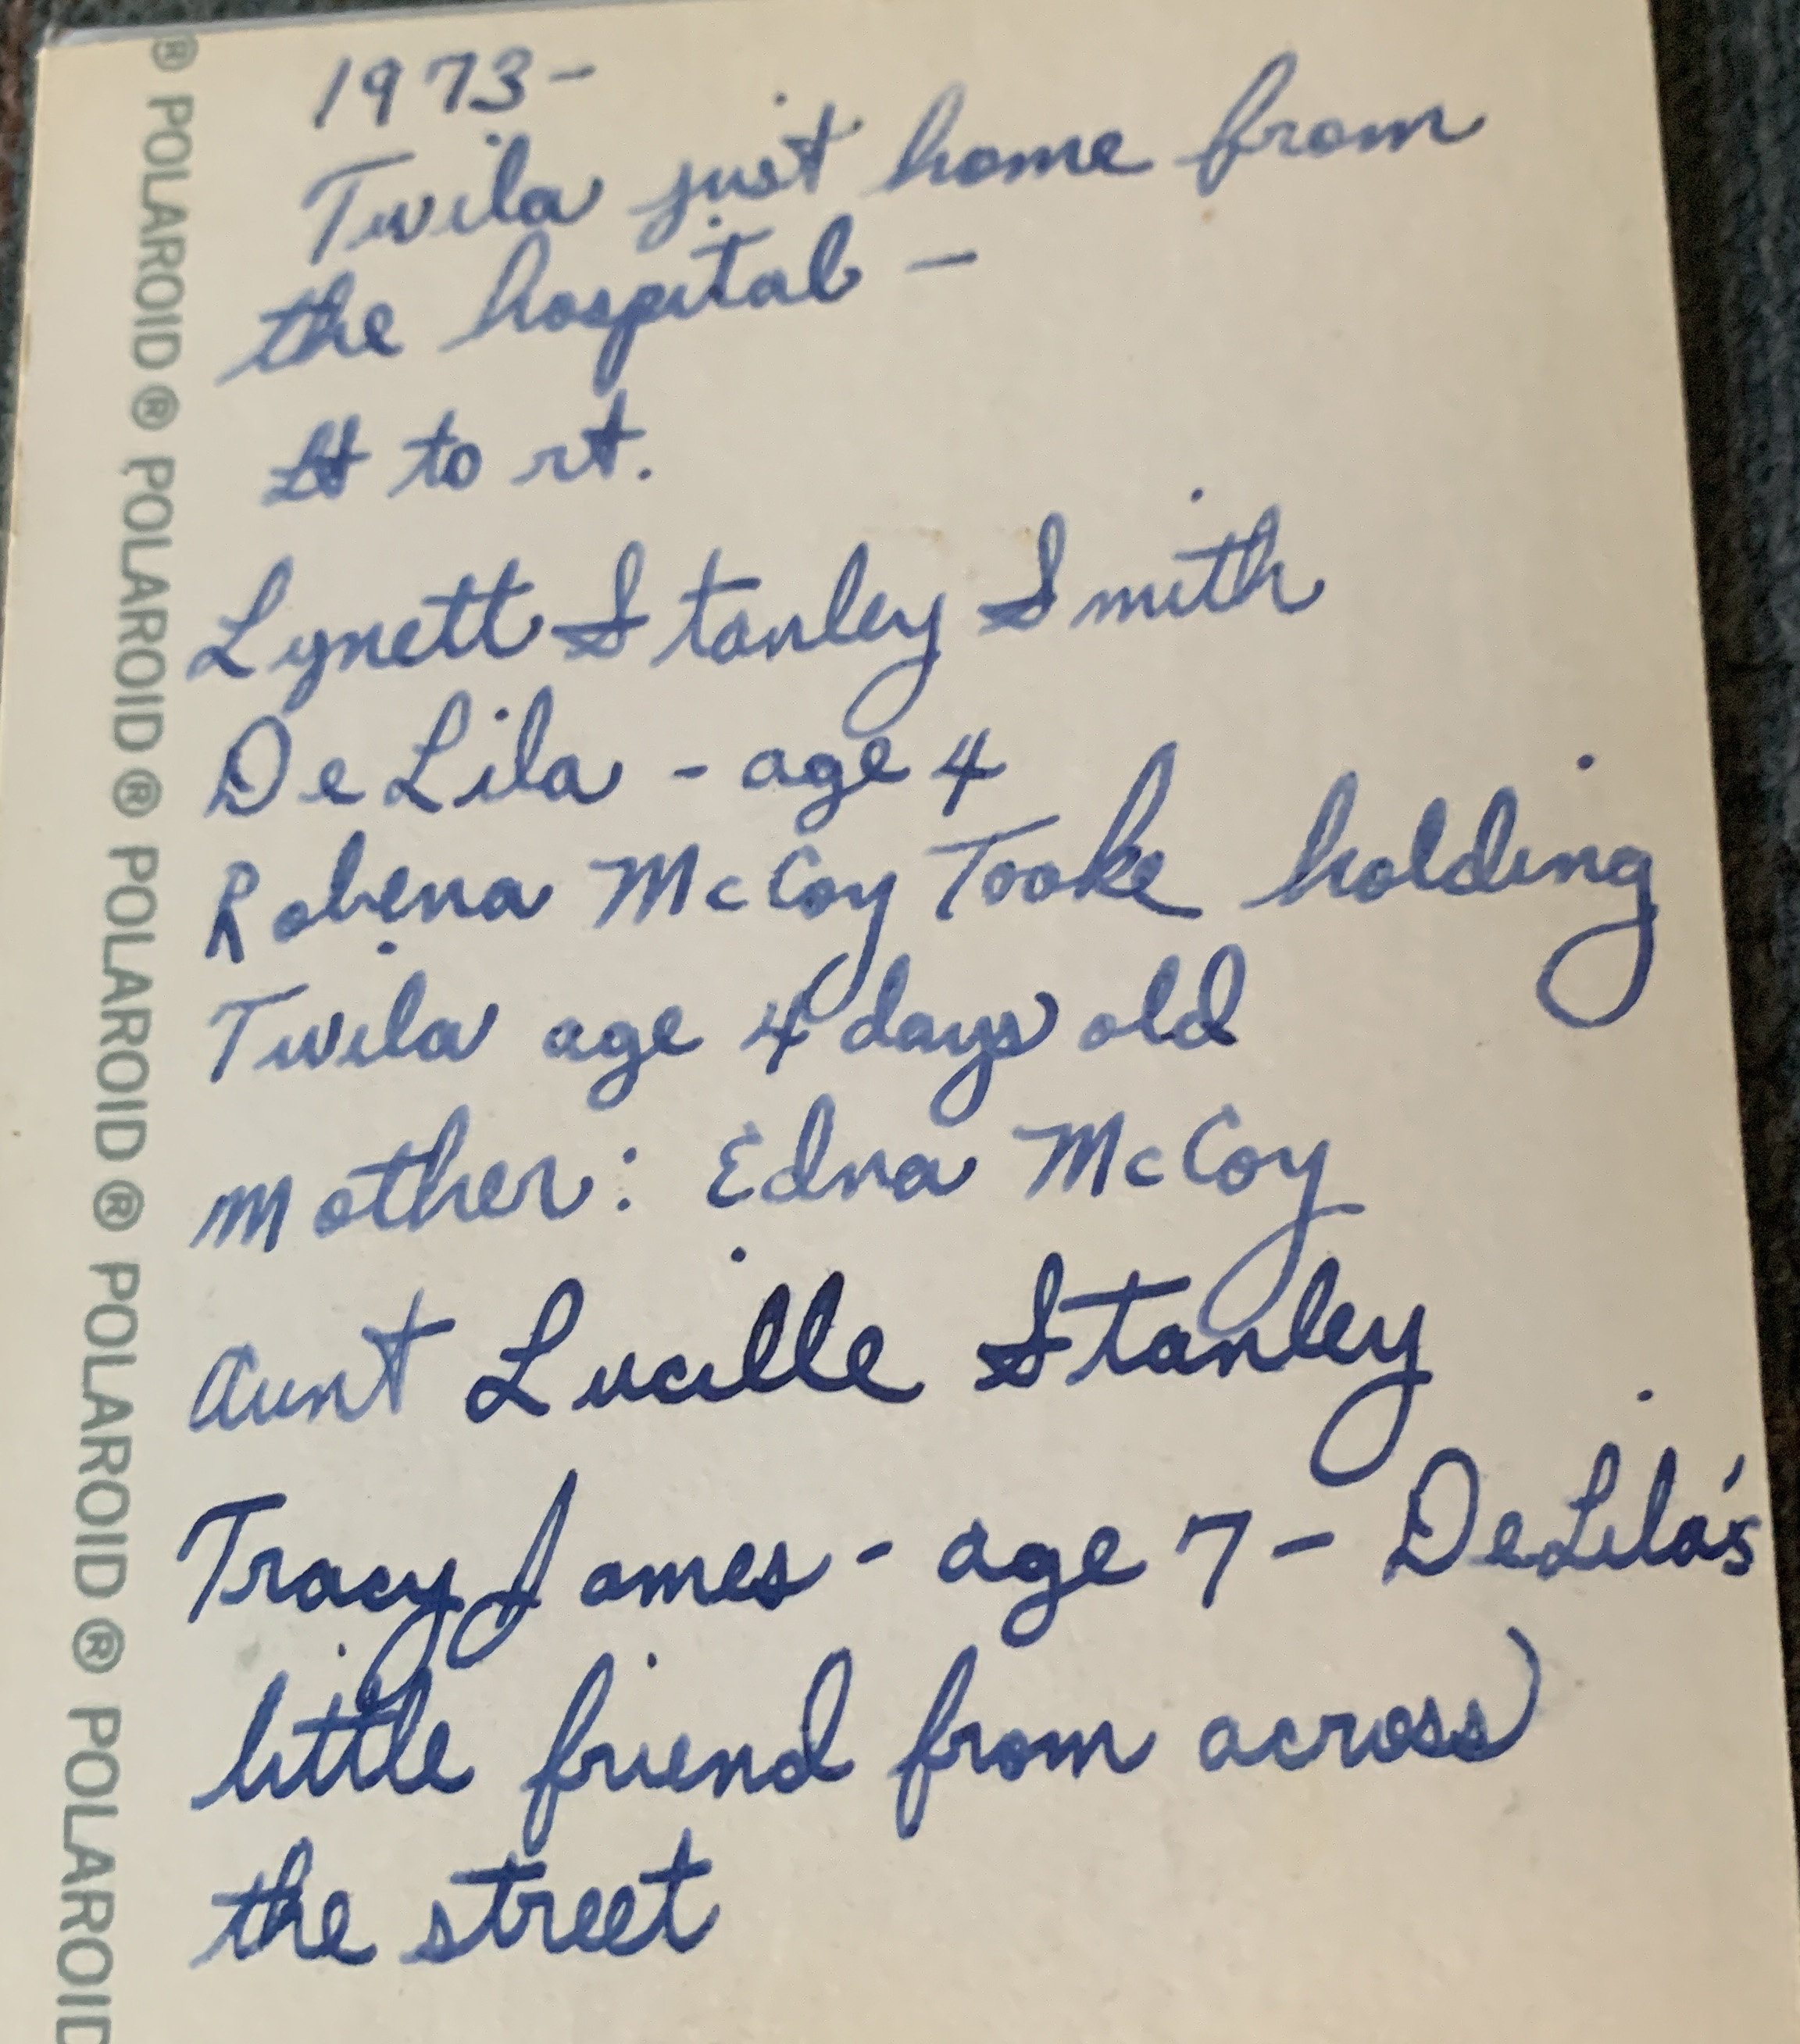 1973-
Twila just home from
the hospital -
Lt to rt.
Lynett Stanley Smith
DeLila - age 4
Robena McCoy Tooke holding
Twila age 4 days old
Mother: Edna McCoy
Aunt Lucille Stanley
Tracy James - age 7 - DeLila's
little friend from across
the street
® POLAROID ® POLAROID ® POLAROID ® POLAROID ® POLAROID ® POLAROID